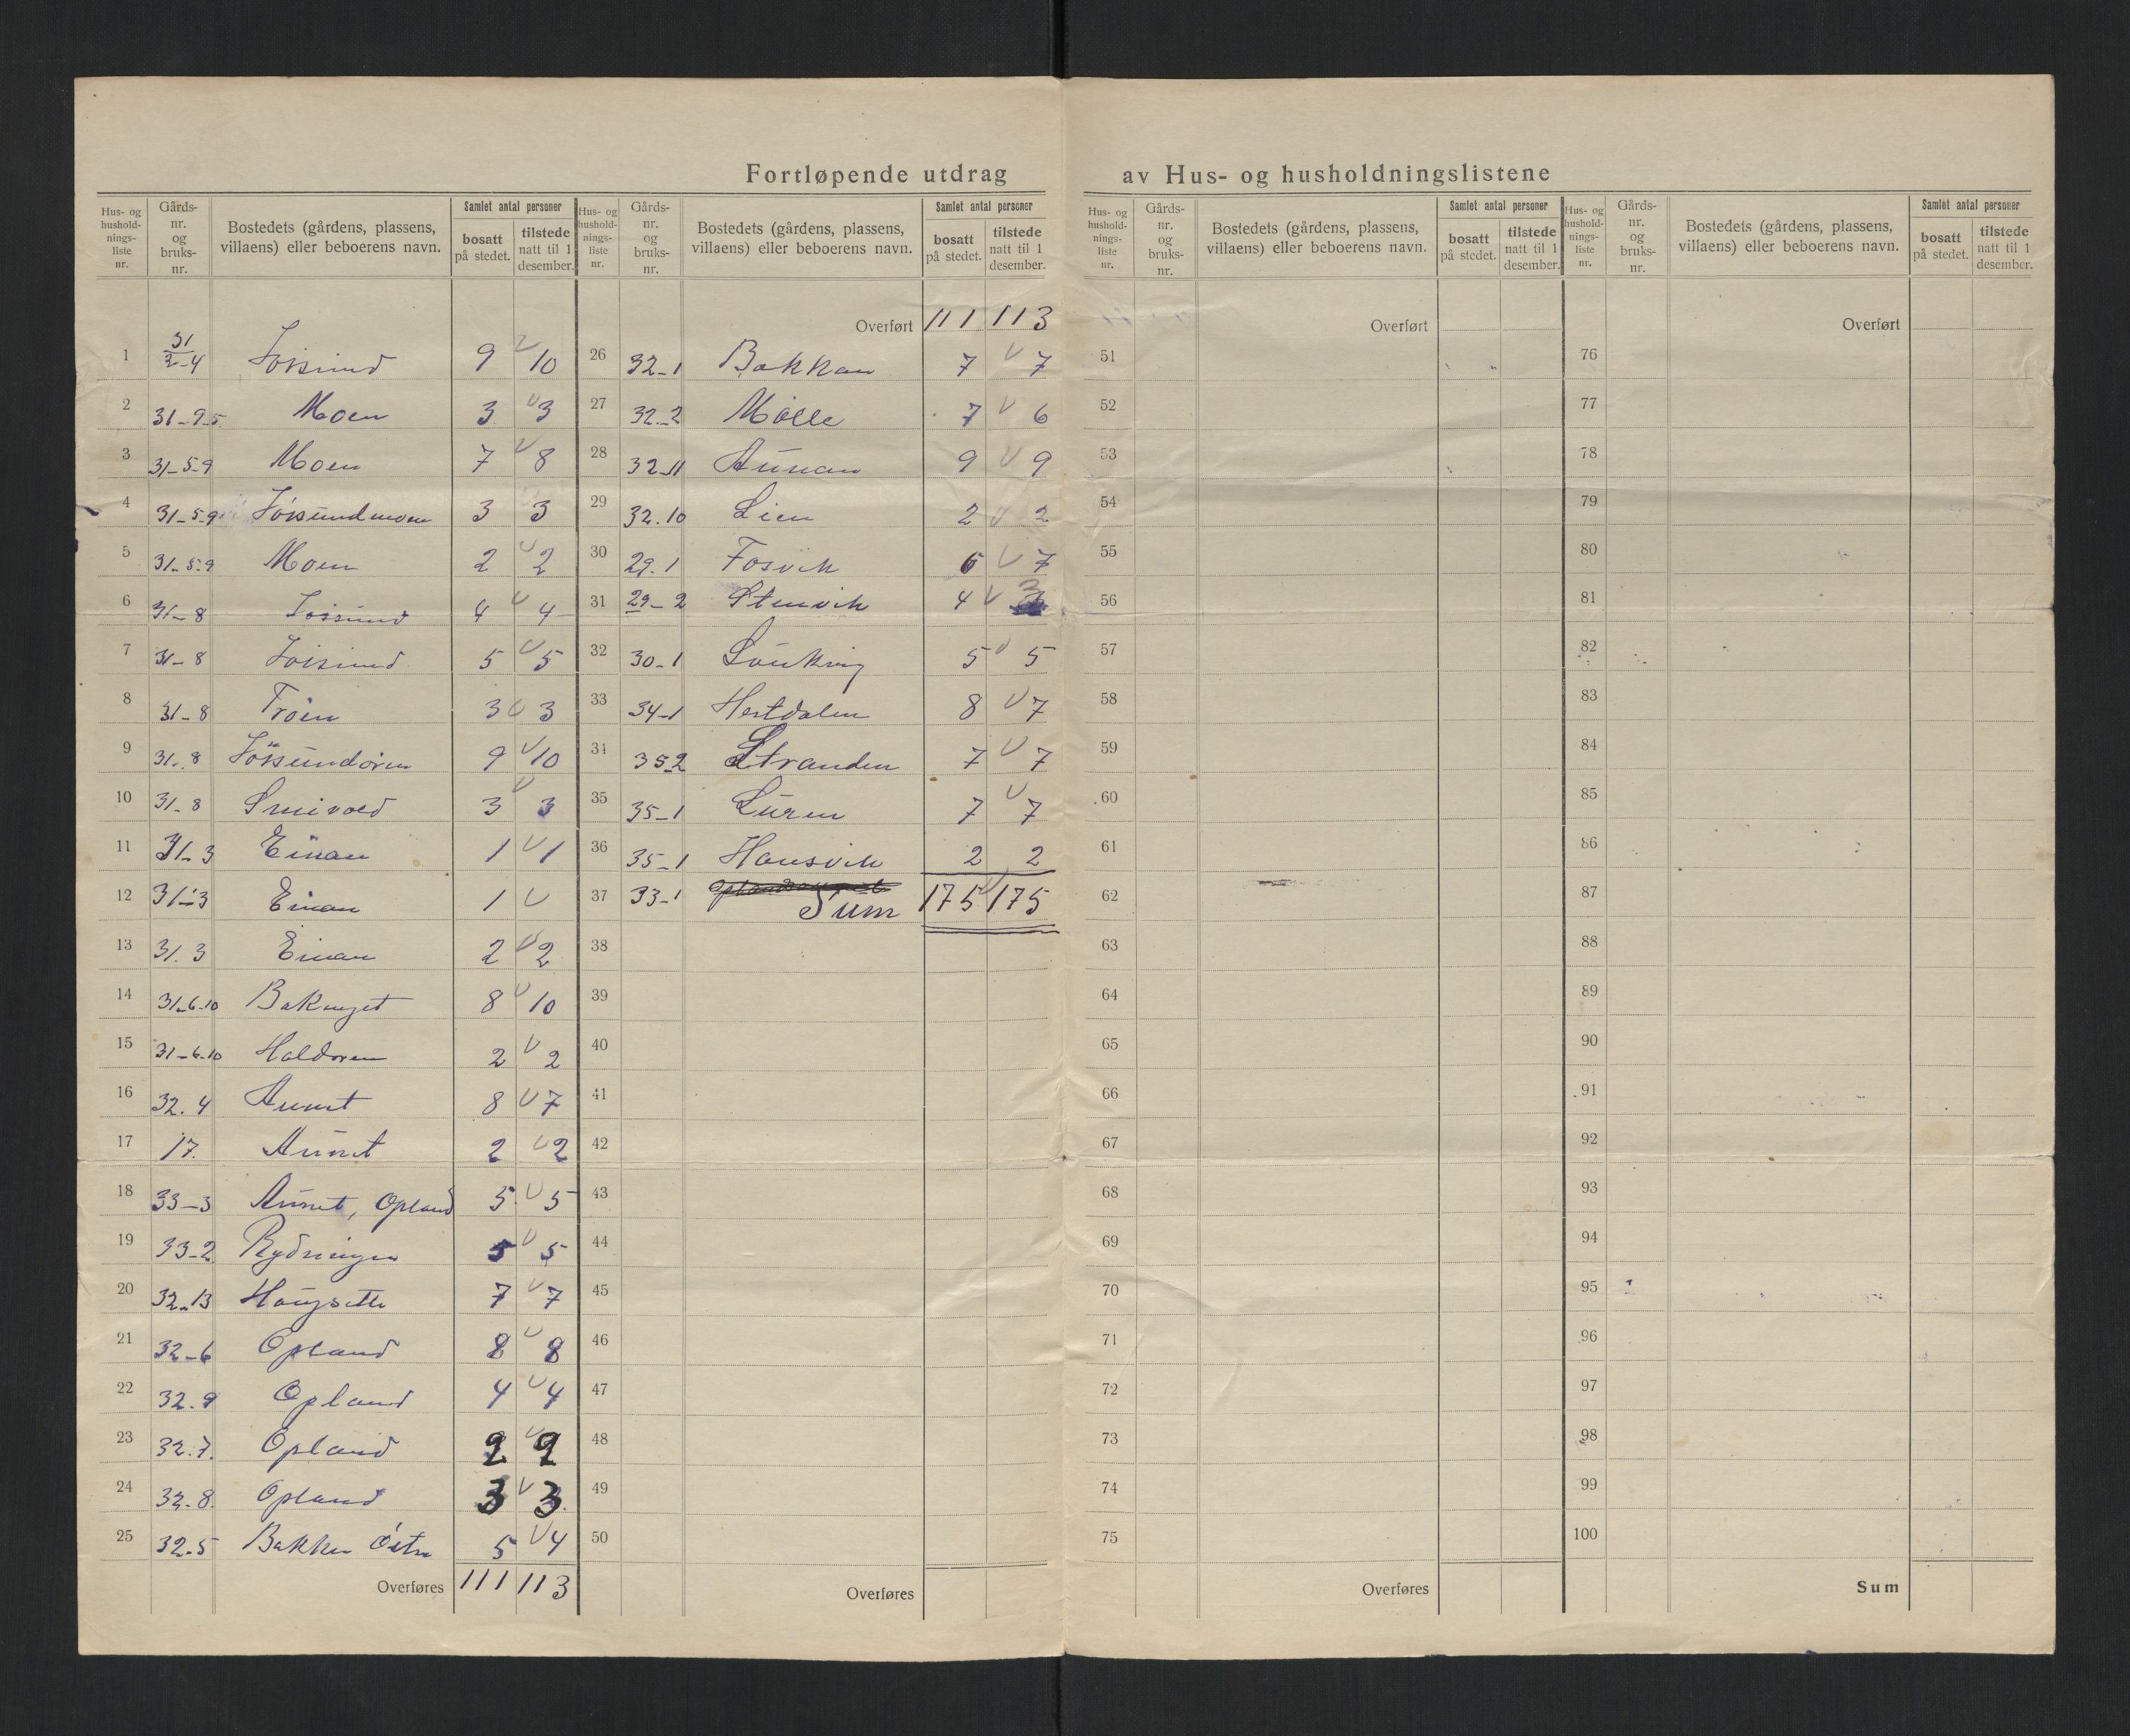 Fortløpende utdrag av Hus- og husholdningslistene
Hus- og hushold-nings-liste nr. Gårds-nr. og bruks-nr. Bostedets (gårdens, plassens, villaens) eller beboerens navn. Samlet antal personer bosatt på stedet. tilstede natt til 1 desember.
1 31 2-4 9 10
2 31-9-5 Moen 3 3
3 31-5-9 Moen 7 8
4 31-5-9 Jøssundmoen 3 3
5 31-5-9 Moen 2 2
6 31-8 Jøssund 4 4
7 31-8 Jøssund 5 5
8 31-8 Trøen 3 3
9 31-8 Jøssundøren 9 10
10 31-8 3 3
11 31-3 Einan 1 1
12 31-3 Einan 1
13 31.3 Einan 2 2
14 31-6-10 Bakenget 8 10
15 31-6-10 Haldoren 2 2
16 32.4 Aunet 8 7
17 17. Aunet 2 2
18 33-3 Aunet, Opland 5 5
19 33-2 Rydningen 5 5
20 32-13 7 7
21 32-6 Opland 8 8
22 32.9 Opland 4 4
23 32.7. Opland 2 2
24 32-8. Opland 3 3
25 32-5 Bakken 5 4
Overføres 111 113
Hus- og hushold-nings-liste nr. Gårds-nr. og bruks-nr. Bostedets (gårdens, plassens, villaens) eller beboerens navn. Samlet antal personer bosatt på stedet. tilstede natt til 1 desember.
Overført 111 113
26 32-1 Bakkan 7 7
27 32-2 Mølle 7 6
28 32-11 Aunan 9 9
29 32.10 Lien 2 2
30 29.1 Fosvik 6 7
31 29-2 Stenvik 4 3
32 30-1 5 5
33 34-1 Hestdalen 8 7
34 35-2 Stranden 7 7
35 35-1 Suren 7 7
36 35-1 Hansvik 2 2
37 33-1 Sum 175 175
38
39
40
41
42
43
44
45
46
47
48
49
50
Overføres
Hus- og hushold-nings-liste nr. Gårds-nr. og bruks-nr. Bostedets (gårdens, plassens, villaens) eller beboerens navn. Samlet antal personer bosatt på stedet. tilstede natt til 1 desember.
Overført
51
52
53
54
55
56
57
58
59
60
61
62
63
64
65
66
67
68
69
70
71
72
73
74
75
Overføres
Hus- og hushold-nings-liste nr. Gårds-nr. og bruks-nr. Bostedets (gårdens, plassens, villaens) eller beboerens navn. Samlet antal personer bosatt på stedet. tilstede natt til 1 desember.
Overført
76
77
78
79
80
81
82
83
84
85
86
87
88
89
90
91
92
93
94
95
96
97
98
99
100
Sum